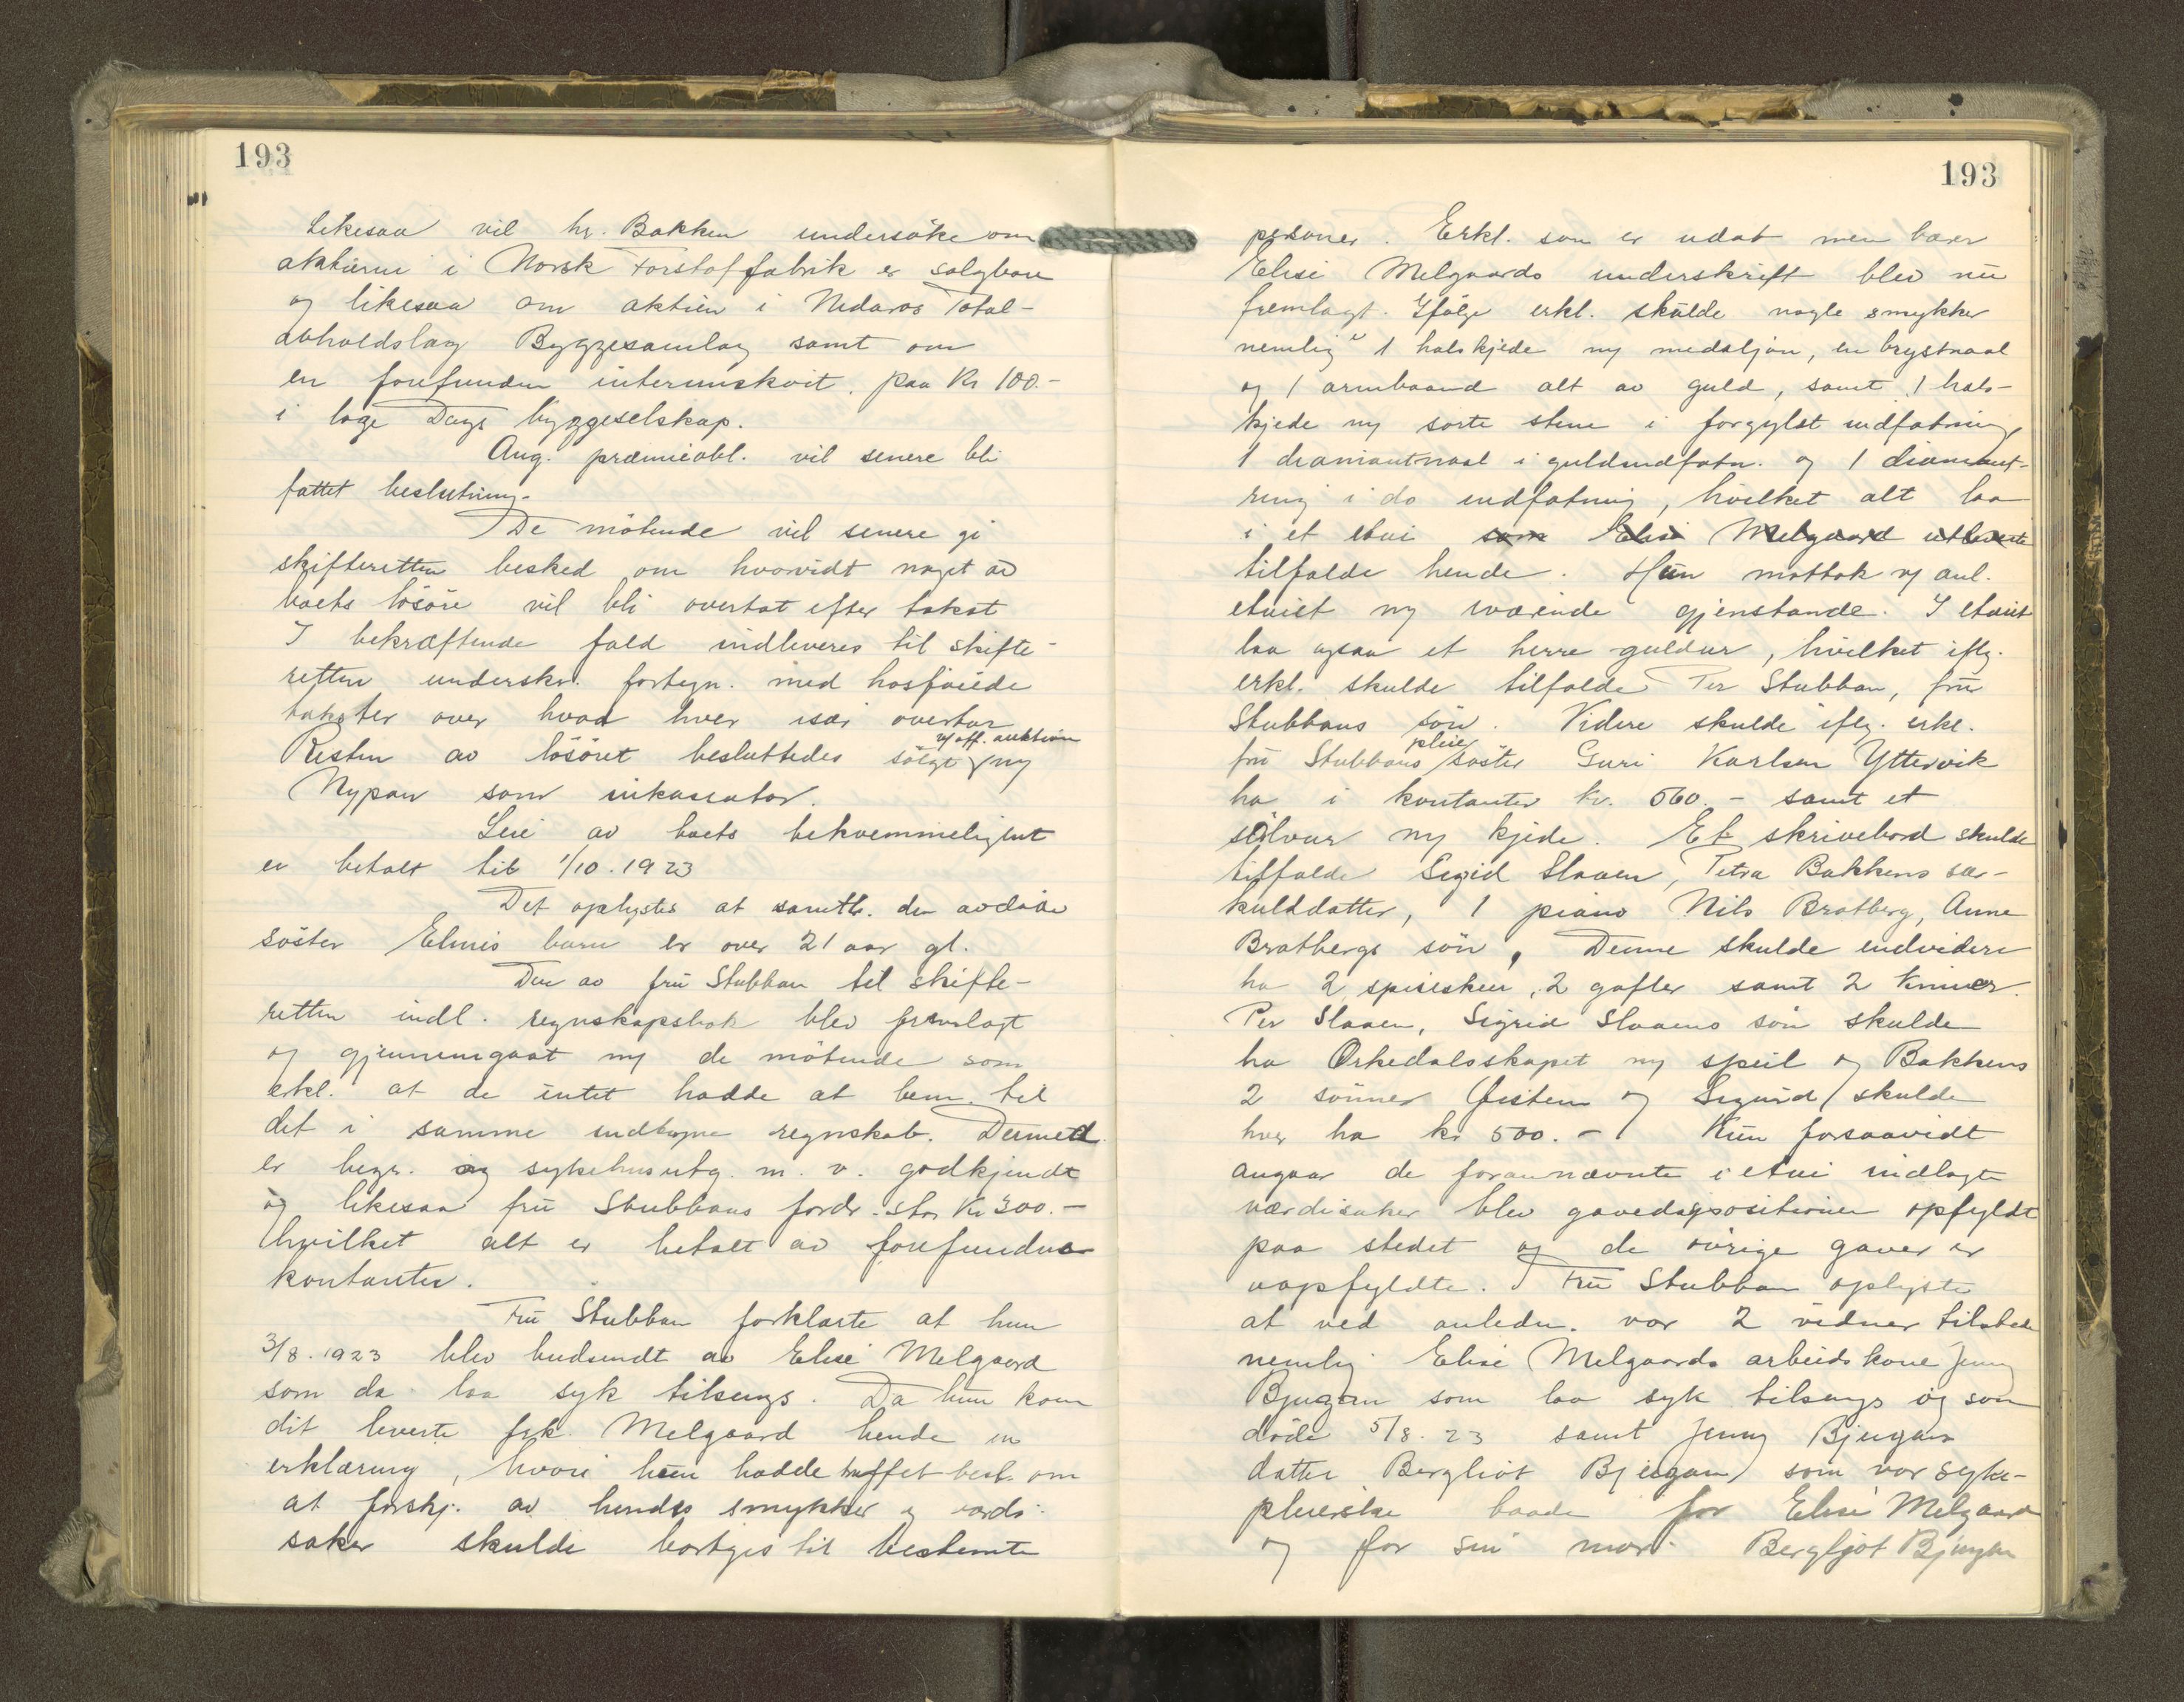 193
Likesaa vil hr. Bakken undersöke om
aktierne i Norsk Torstoffabrik er salgbare
og likesaa om aktien i Nidaros Total-
avholdslag Byggesamlag samt om
en forefunden interimskvit. paa Kr 100.-
i loge Dags byggeselskap.
Ang. præmieobl. vil senere bli
fattet beslutning.
De mötende vil senere gi
skifteretten besked om hvorvidt noget av
boets lösöre vil bli overtat efter takst
I bekræftende fald indleveres til skifte-
retten underskr. fortegn. med hosföiede
takster over hvad hver især overtar
Resten av lösöret besluttedes solgt v/ off. auktion m/
Nypan som inkassator.
Leie av boets bekvemmelighet
er betalt til 1/10.1923
Det oplystes at samtl. den avdöde
söster Elens barn er over 21 aar gl.
Den av fru Stubban til skifte-
retten indl. regnskapsbok blev fremlagt
og gjennemgaat m/ de mötende som
erkl. at de intet hadde at bem. til
det i samme indtagne regnskab. Dermed
er begr. og sykehusutg. m. v. godkjendt
og likesaa fru Stubbans fordr. stor Kr 300.-
hvilket alt er betalt av forefundne
kontanter.
Fru Stubban forklarte at hun
3/8.1923 blev budsendt av Elise Melgaard
som da laa syk tilsengs. Da hun kom
dit leverte frk. Melgaard hende en
erklæring, hvori hun hadde truffet best. om
at forskj. av hendes smykker og værdi-
saker skulde bortgis til bestemte
193
personer. Erkl. som er udat. men bærer
Elise Melgaards underskrift blev nu
fremlagt. Ifölge erkl. skulde nogle smykker
nemlig 1 halskjede m/ medaljon, en brystnaal
og 1 armbaand alt av guld, samt 1 hals-
kjede m/ sorte stene i forgyldt indfatning
1 diamantnaal i guldindfatn. og 1 diamant-
ring i do indfatning, hvilket alt laa
i et etui som Elise Melgaard utleverte
tilfalde hende. Hun mottok v/ anl.
etuiet m/ værende gjenstande. I etuiet
laa ogsaa et herre-guldur, hvilket iflg.
erkl. skulde tilfalde Per Stubban, fru
Stubbans sön. Videre skulde iflg. erkl.
fru Stubbans pleiesöster Guri Karlsen Yttervik
ha i kontanter kr. 500.- samt et
sölvur m/ kjede. Et skrivebord skulde
tilfalde Sigrid Slaaen, Petra Bakkens sær-
kulddatter, 1 piano Nils Bratberg, Anne
Bratbergs sön, Denne skulde endvidere
ha 2 spiseskeer, 2 gafler samt 2 kniver.
Per Slaaen, Sigrid Slaaens sön skulde
ha Orkedalsskapet m/ speil og Bakkens
2 sönner (Øistein og Sigurd) skulde
hver ha kr 500.- Kun forsaavidt
angaar de forannævnte i etui indlagte
værdisaker blev gavedisposition opfyldt
paa stedet og de övrige gaver er
uopfyldte. Fru Stubban oplyste
at ved anledn. var 2 vidner tilstede
nemlig Elise Melgaards arbeidskone Jenny
Bjugan som laa syk tilsengs og som
döde 5/8.23 samt Jenny Bjugans
datter Bergliot Bjugan som var syke-
pleierske baade for Elise Melgaard
og for sin mor. Bergljot Bjugan